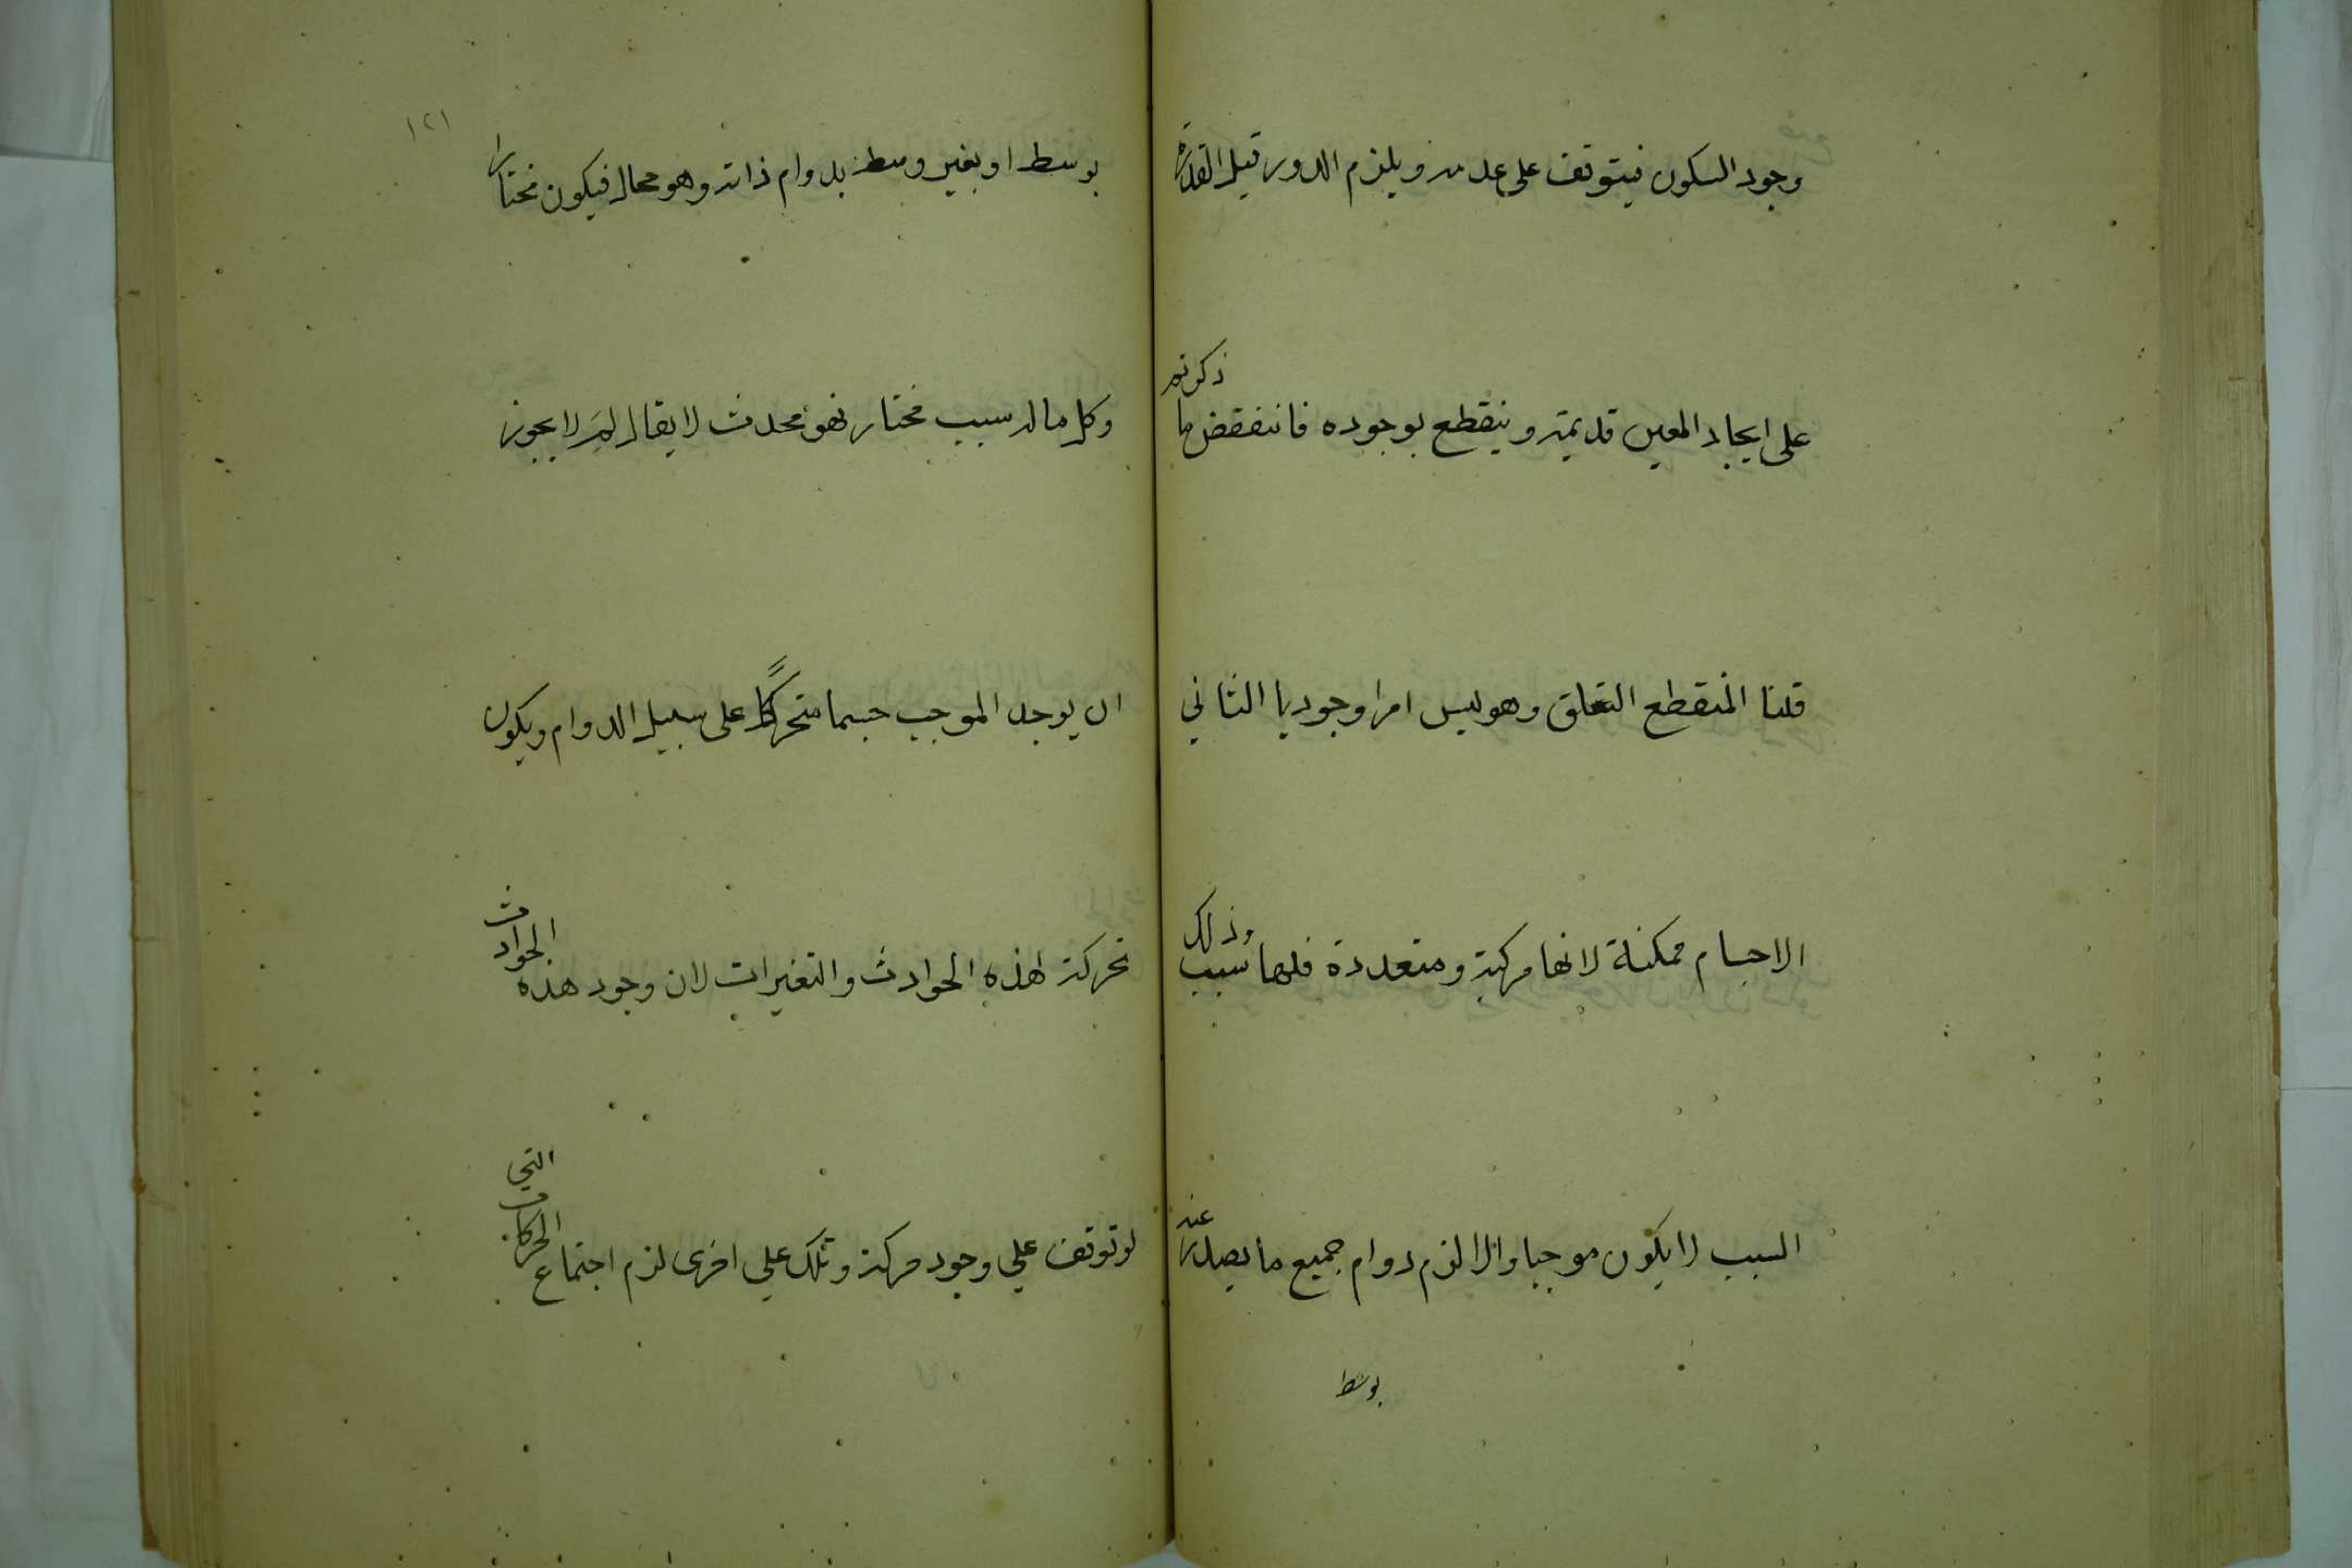 وجود السكون فيتوقف على عدمه ويلزم الدور قيل القدرة
على ايجاد المعين قديمة وينقطع بوجوده فانتفقض ما ذكرتم
قلنا المنقطع التعلق وهو ليس امرا وجوديا الثاني
الاجسام ممكنة لانها مركبة ومتعددة فلها سبب وذلك
السبب لا يكون موجبا والا لزم دوام جميع ما يصدر عنه
بوسط
١٢١
بوسط او بغير وسط بدوام ذاته وهو محال فيكون مختارا
وكل ما له سبب مختار فهو محدث لا يقال لِمَ لا يجوز
ان يوجد الموجب جسما متحركًا على سبيل الدوام ويكون
تحركه لهذه الحوادث والتغيرات لان وجود هذه الحوادث
لو توقف علي وجود حركة وتلك علي اخرى لزم اجتماع الحركات التي